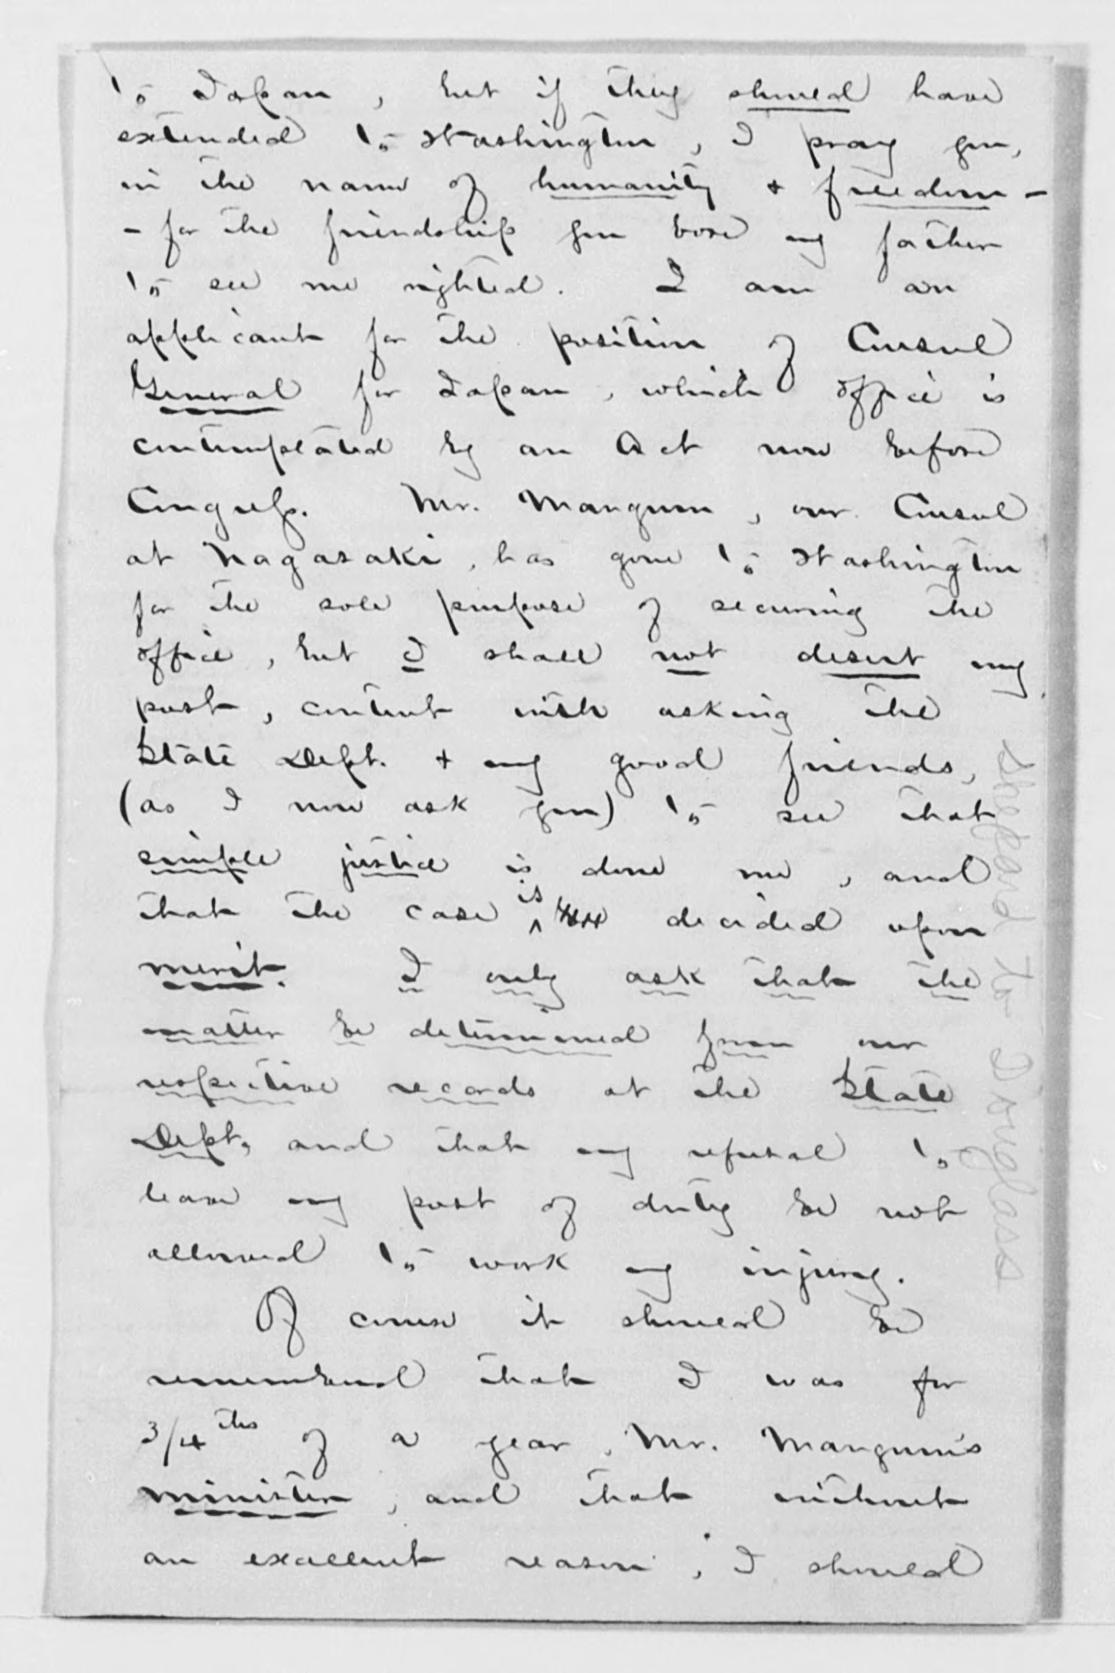 to Japan, but if they should have
extended to Washington, I pray you,
in the name of humanity & freedom -
- for the friendship you bore my father
to see me righted. I am an
applicant for the position of Consul
General for Japan, which office is
contemplated by an Act now before
Congress. Mr. Mangum, our Consul
at Nagasaki, has gone to Washington
for the sole purpose of securing the
office, but I shall not desert my
post, content with asking the
State Dept. & my good friends,
(as I now ask you) to see that
simple justice is done me, and
that the case is decided upon
merit. I only ask that the
matter be determined from our
respective records at the State
Dept, and that my refusal to
leave my post of duty be not
allowed to work my injury.
Of course it should be
remembered that I was for
3/4ths of a year, Mr. Mangum's
minister, and that without
an excellent reason, I should
Shepard to Douglass